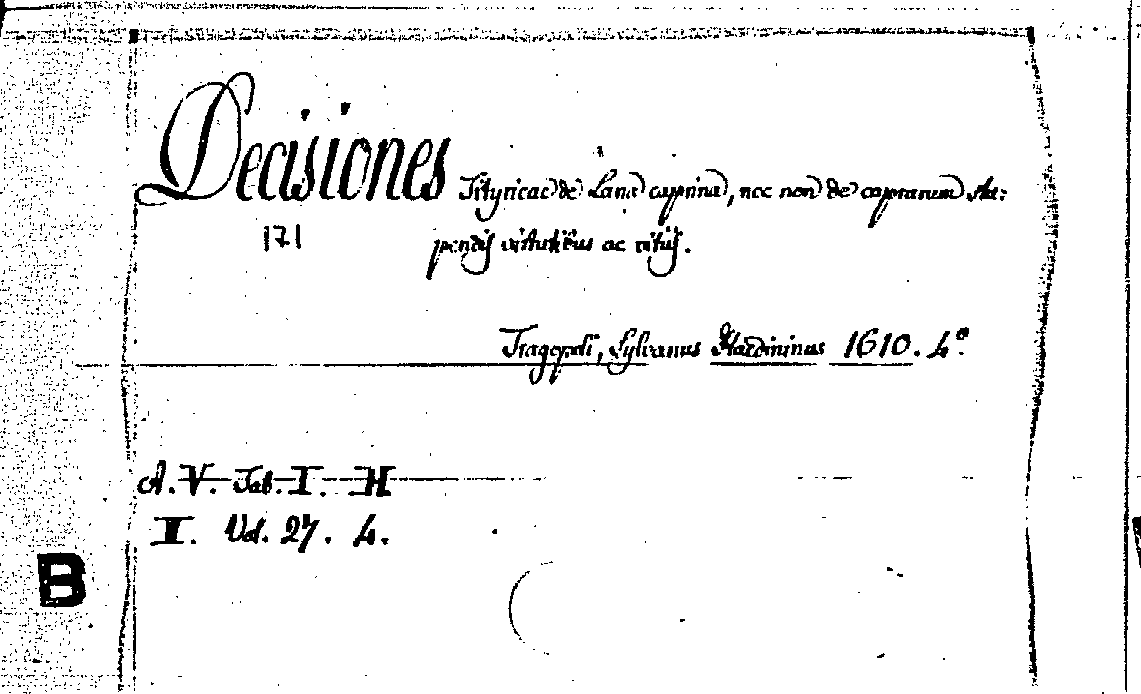 Decisiones Tityricae de Lana caprina, nec non de caprarum stu:
171
pendis virtutibus ac vitijs.
Tragopoli, Sylvanus Haedininus 1610. 4º.
A. V. Tab. I. H
II. Vol. 27. 4.
B